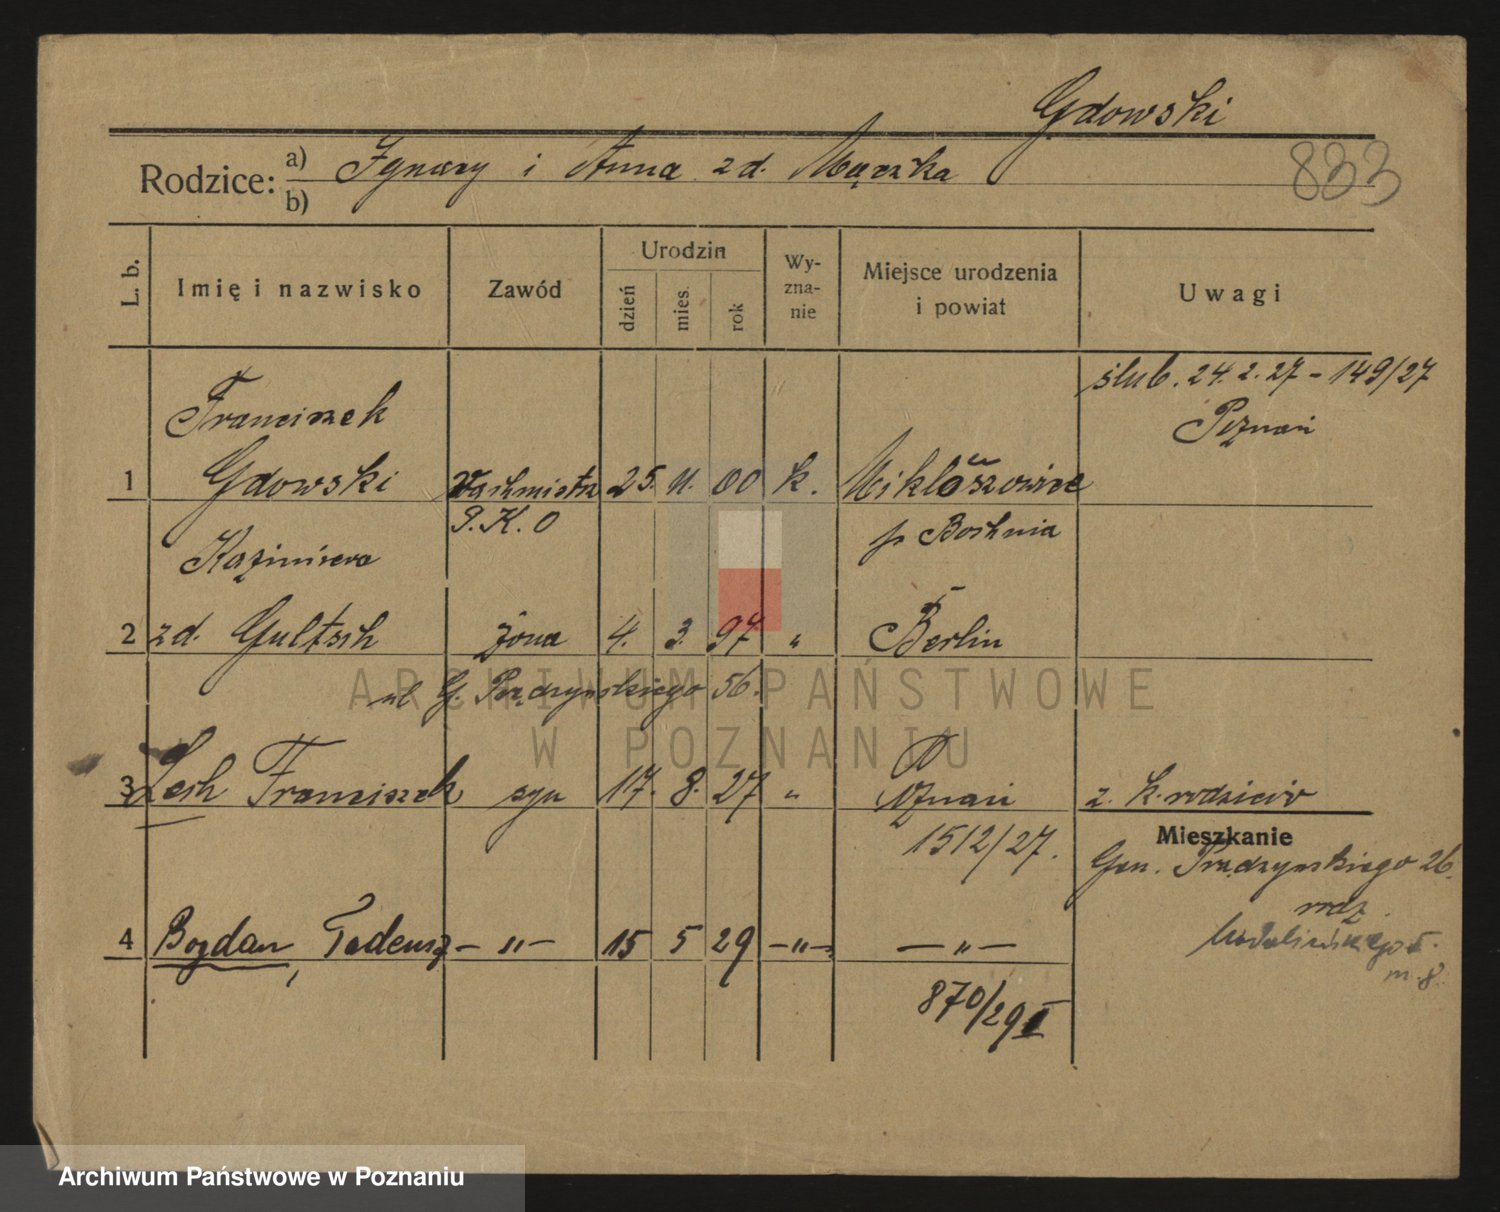 Gdowski
833
Rodzice: a) Ignacy i Anna zd. Mączka
b)
L. b.
Imię i nazwisko
Zawód
Urodzin
dzień
mies.
rok
Wy-
zna-
nie
Miejsce urodzenia
i powiat
Uwagi
ślub. 24. 2. 27 - 149/27
Poznań
Franciszek
1 Gdowski Wachmistrz 25. 11. 00 k. Mikłuszowice
P. K. O p. Bochnia
Kazimiera
2 zd. Gultsch żona 4. 3. 97 " Berlin
ul. G. Prądzyńskiego 56.
3 Lech Franciszek syn 17. 8. 27 " Poznań z. k. rodziców
1512/27.
Mieszkanie
Gen. Prądzyńskiego 26.
rodz.
4 Bogdan, Tadeusz - " - 15 5 29 - " - - " -
m. 8.
870/29 II
ARCHIWUM PAŃSTWOWE
W POZNANIU
Archiwum Państwowe w Poznaniu